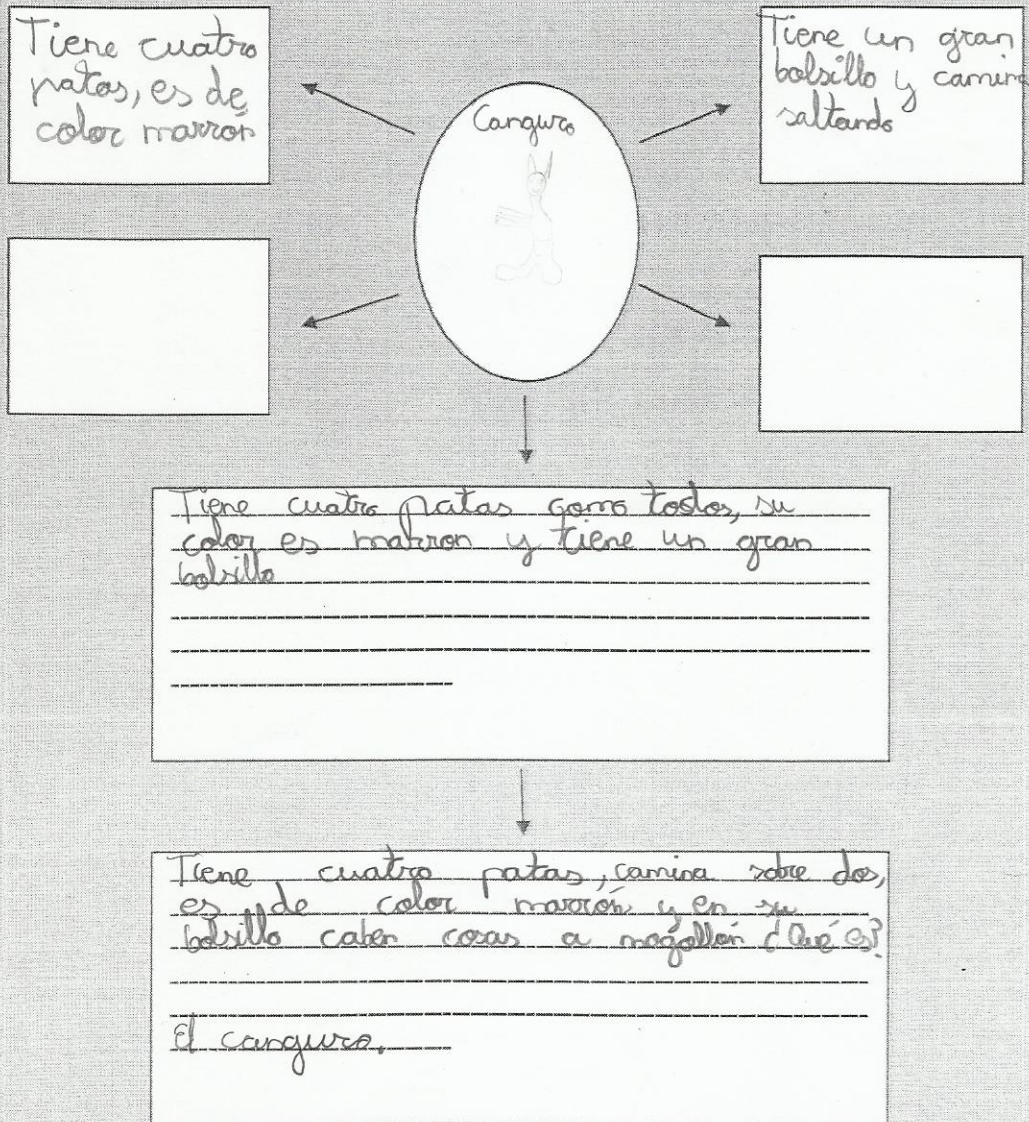 Tiene cuatro
patas, es de
color marrón
Canguro
Tiene un gran
bolsillo y camina
saltando
Tiene cuatro patas como todos, su
color es marron y tiene un gran
bolsillo
Tiene cuatro patas, camina sobre dos,
es de color marrón y en su
bolsillo caben cosas a mogollón ¿Qué es?
El canguro.